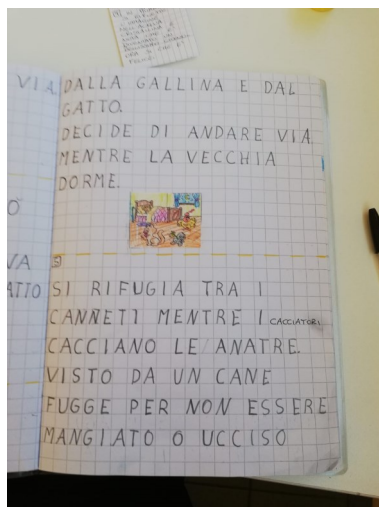 VIA
DALLA GALLINA E DAL
GATTO.
DECIDE DI ANDARE VIA
MENTRE LA VECCHIA
DORME.
VA
ATTO
SI RIFUGIA TRA I
CANNETI MENTRE I CACCIATORI
CACCIANO LE ANATRE.
VISTO DA UN CANE
FUGGE PER NON ESSERE
MANGIATO O UCCISO